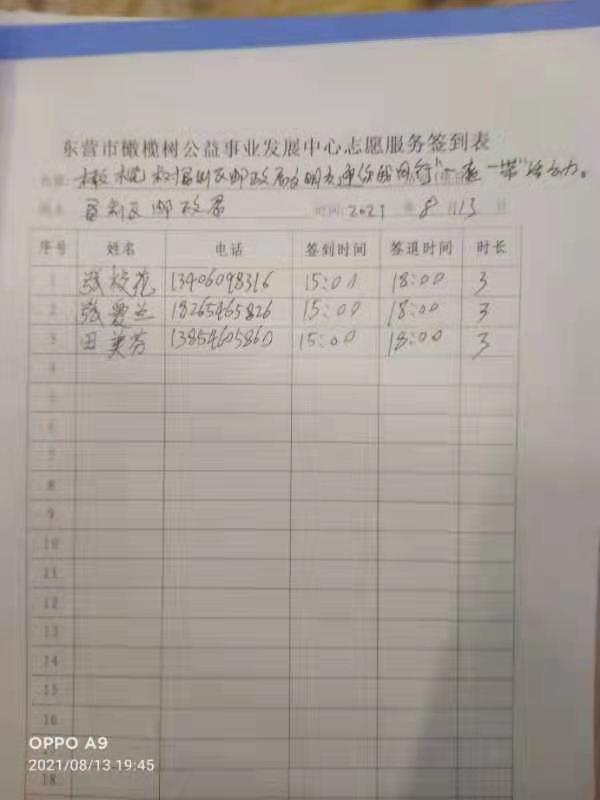 东营市橄榄树公益事业发展中心志愿服务签到表
橄榄树垦利区邮政局文明交通你我同行"一盔一带"活动。
垦利区邮政局 时间:2021年8月13日
序号 姓名 电话 签到时间 签退时间 时长
1 张校花 13406098316 15:00 18:00 3
2 张爱兰 18265465826 15:00 18:00 3
3 田美芬 13854605860 15:00 18:00 3
4
5
6
7
8
9
10
11
12
13
14
15
16
18
OPPO A9
2021/08/13 19:45